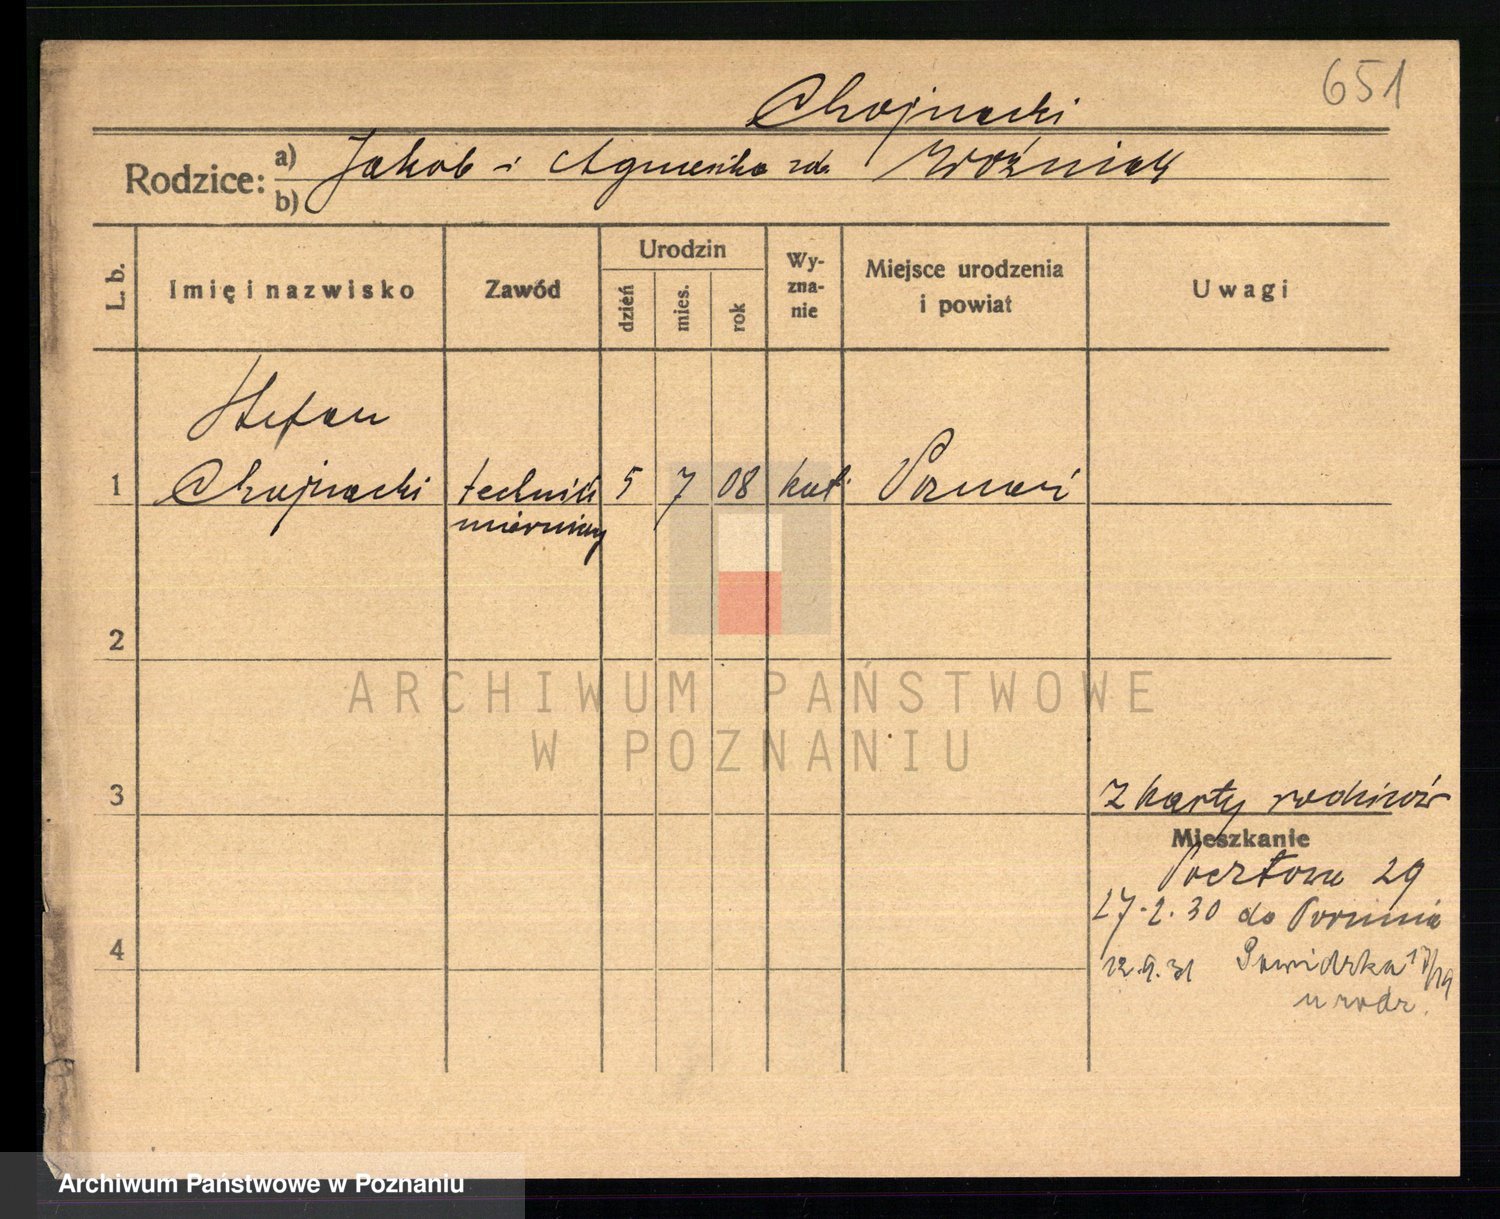 651
Chojnacki
Rodzice: a) Jakob i Agnieszka zd. Woźniak
b)
L. b.
Imię i nazwisko
Zawód
Urodzin
dzień
mies.
rok
Wy-
zna-
nie
Miejsce urodzenia
i powiat
Uwagi
Stefan
1 Chojnacki technik 5 7 08 kat. Poznań
mierniczy
2
ARCHIWUM PAŃSTWOWE
W POZNANIU
3
z karty rodziców
Mieszkanie
Pocztowa 29
17.2.30 do Poznania
4
12.9.31 Powidzka 17/19
u rodz.
Archiwum Państwowe w Poznaniu